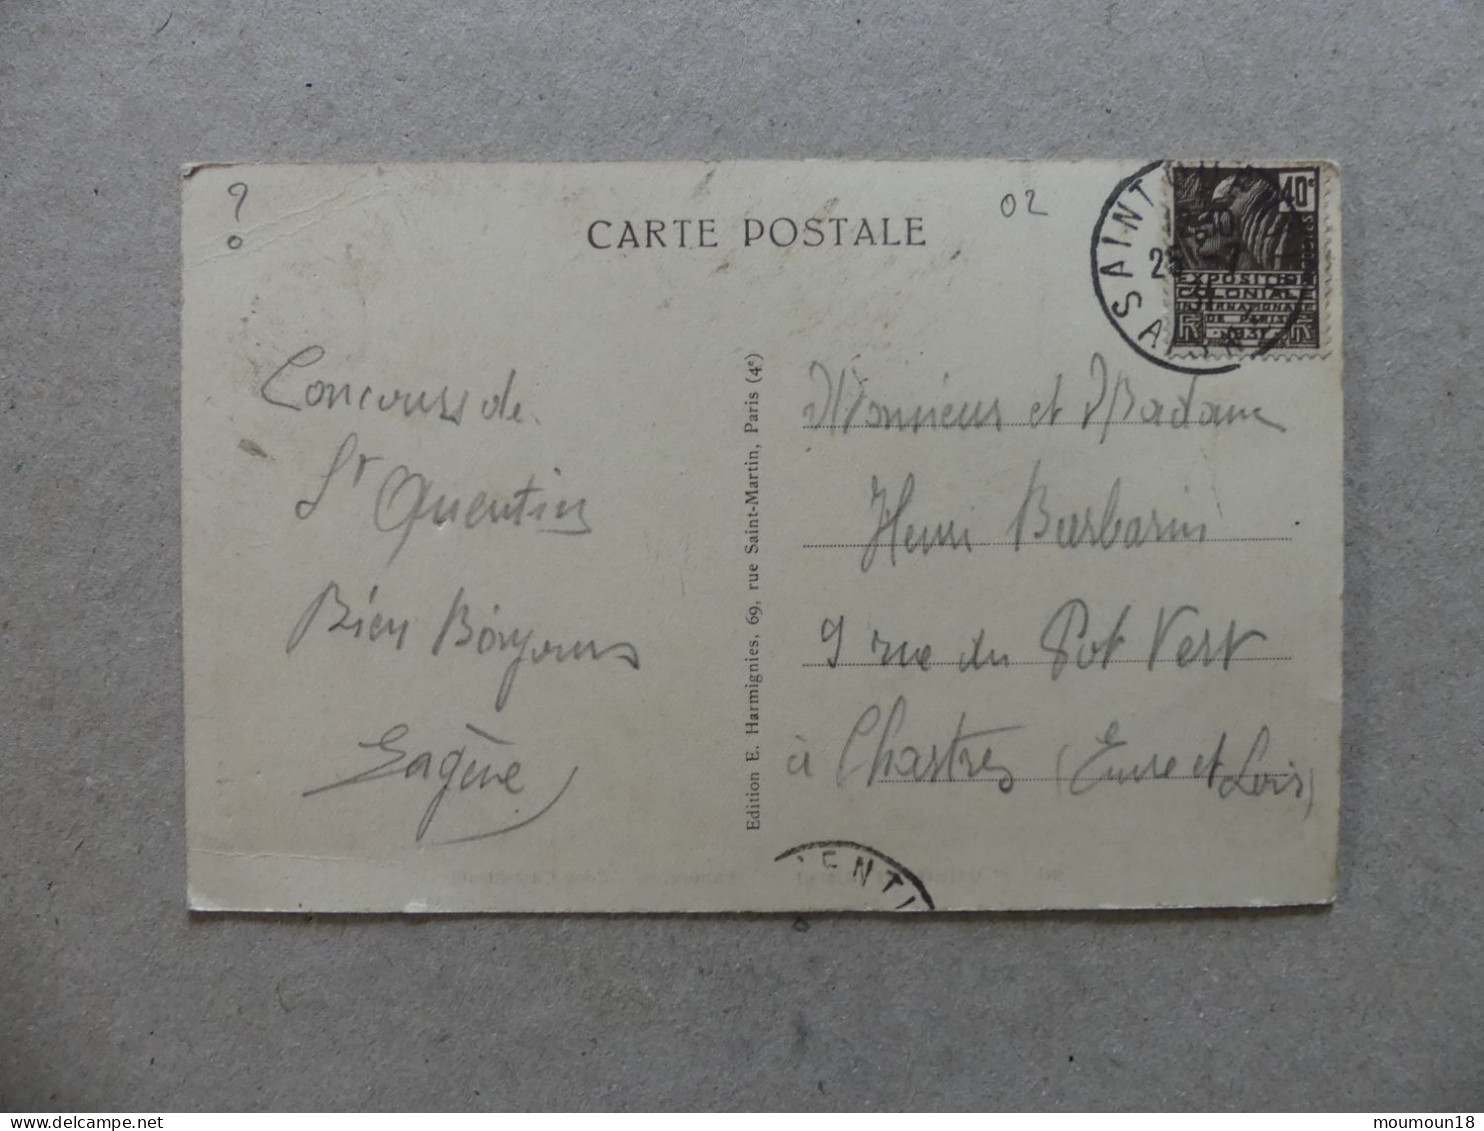 ?
CARTE POSTALE
02
SAINT QUENTIN
25 7
31
40c
POSTES
EXPOSITION
COLONIALE
INTERNATIONALE
DE PARIS
1931
Concours de
St Quentin
Bien Bonjours
Eugène
Edition E. Harmignies, 69, rue Saint-Martin, Paris (4e)
Monsieur et Madame
Henri Barbarin
9 rue du Pot Vert
à Chartres (Eure et Loir)
ENTI
moumoun18